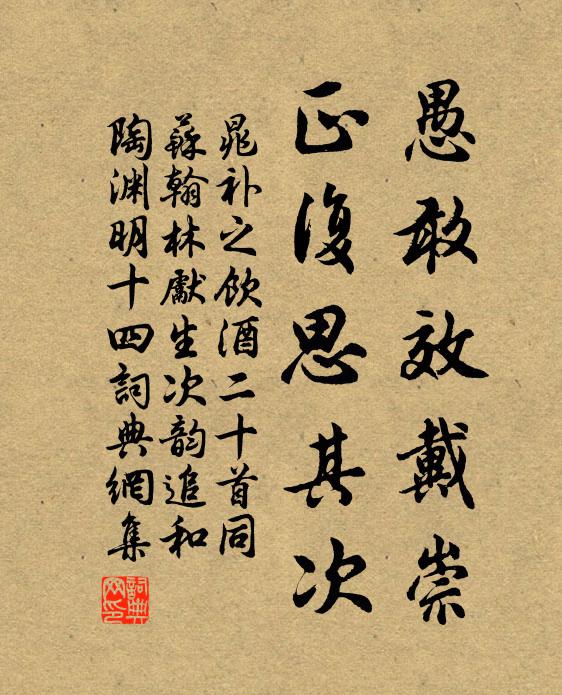 愚敢效戴崇
正復思其次
晁补之飲酒二十首同
蘇翰林獻生次韵追和
陶渊明十四詞典網集
詞典
网印